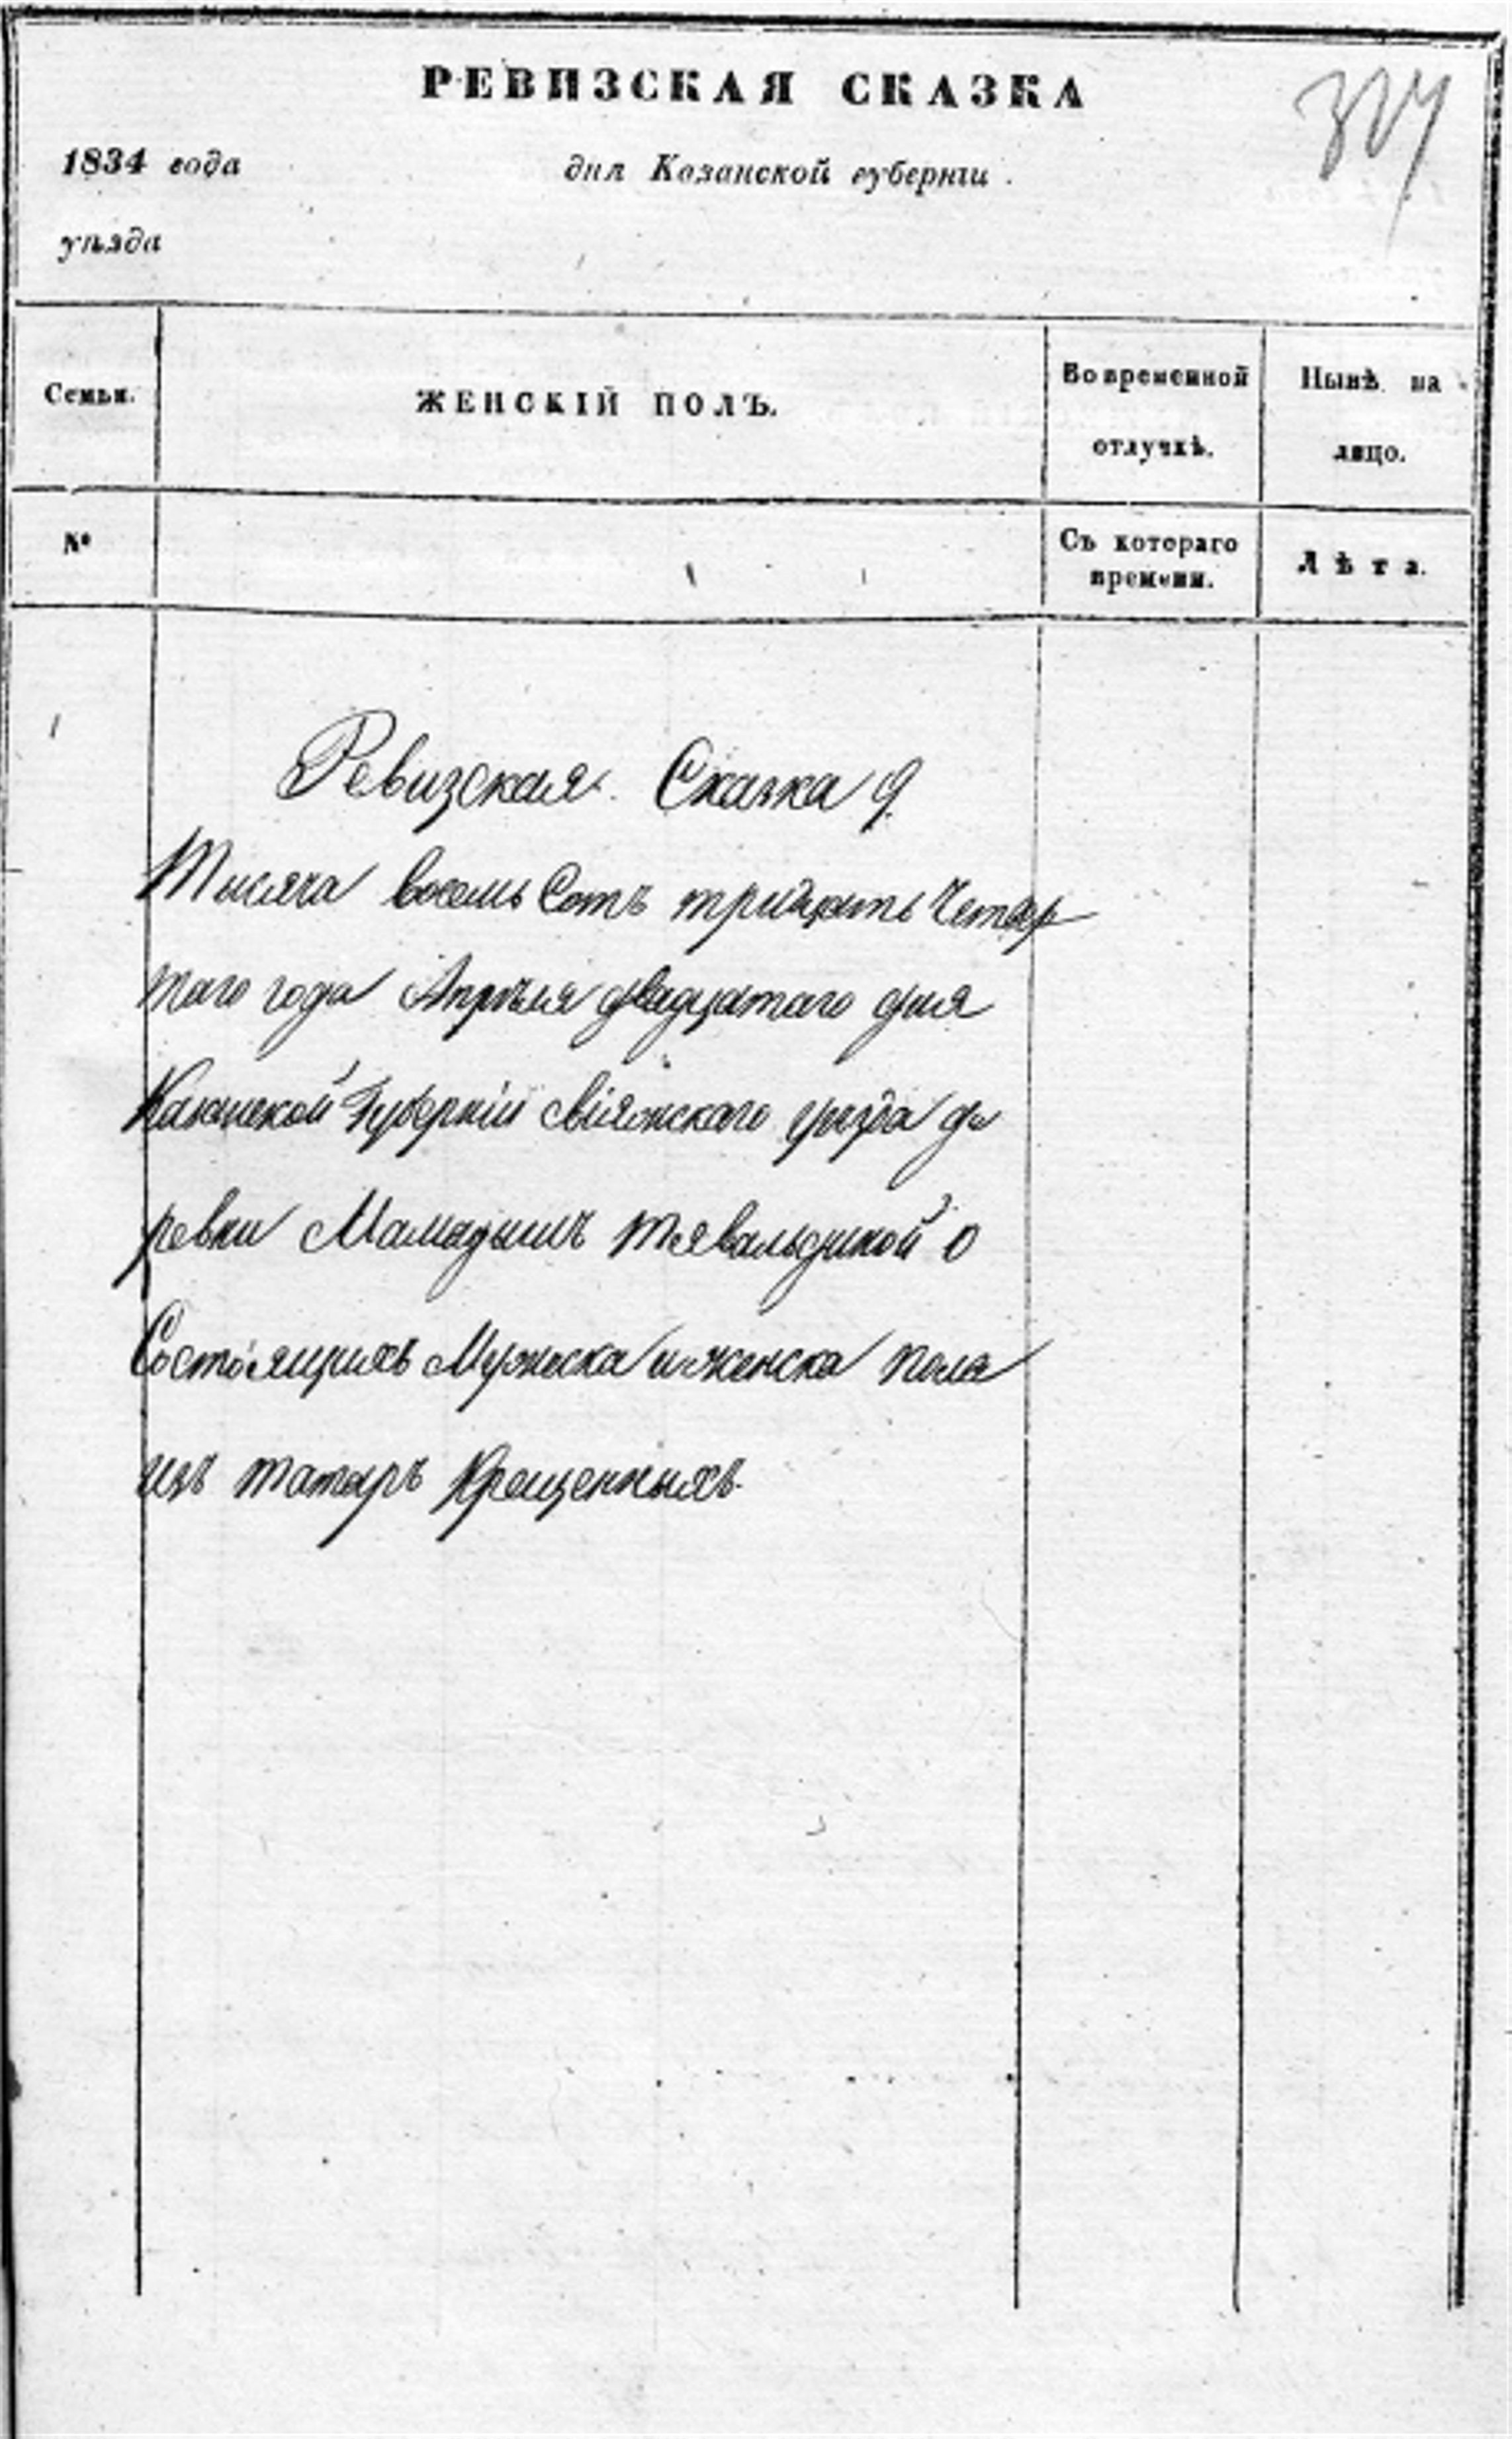 РЕВИЗСКАЯ СКАЗКА
1834 года дня Казанской губернии.
уѣзда
Семьи. ЖЕНСКІЙ ПОЛЪ. Во временной отлучкѣ. Нынѣ на лицо.
№ Съ котораго времени. Лѣта.
Ревизская Сказка
Тысяча восемь Сотъ тридцать Четвер
таго года Апрѣля двадцатаго дня
Казанской Губерніи свіяжскаго уѣзда де
ревни Мамадышъ Тявальдиной о
Состоящихъ Мужеска и женска пола
изъ татаръ Крещенныхъ